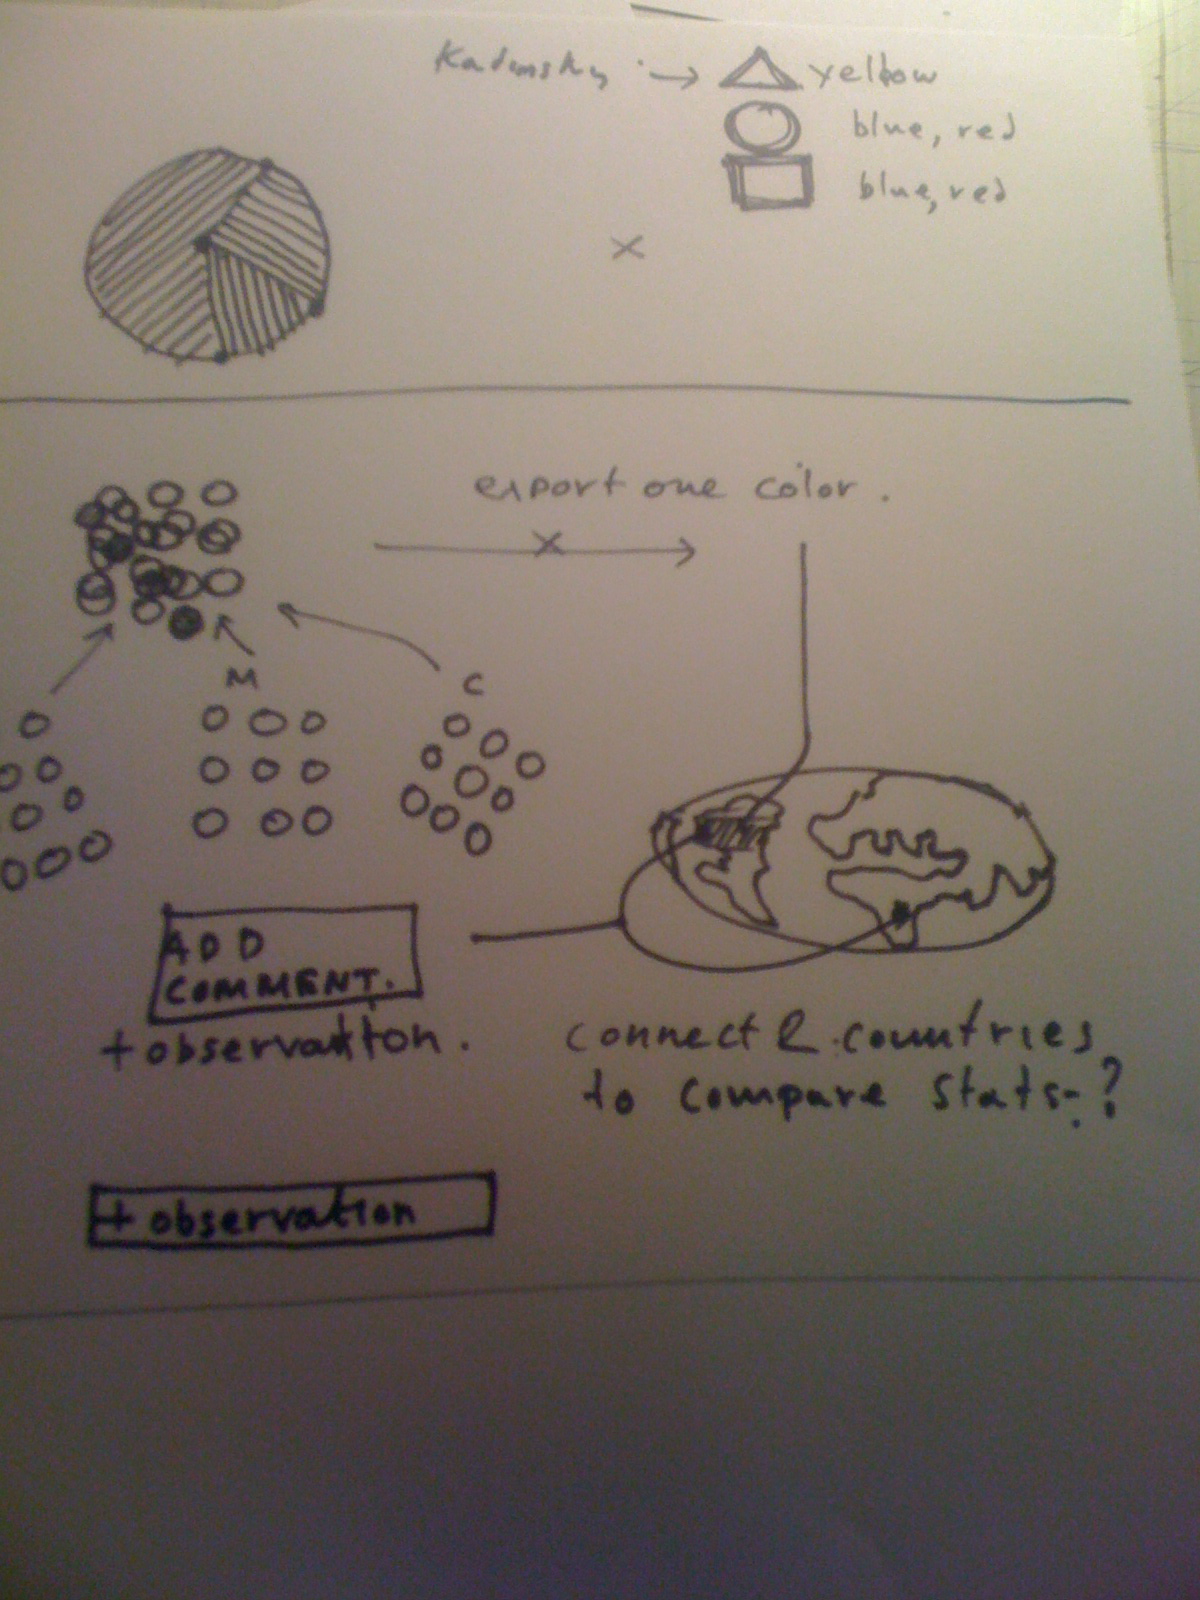 Kadinsky → yellow
blue, red
blue, red
export one color.
M
C
ADD
COMMENT.
+ observation.
connect 2 countries
to compare stats-?
+ observation